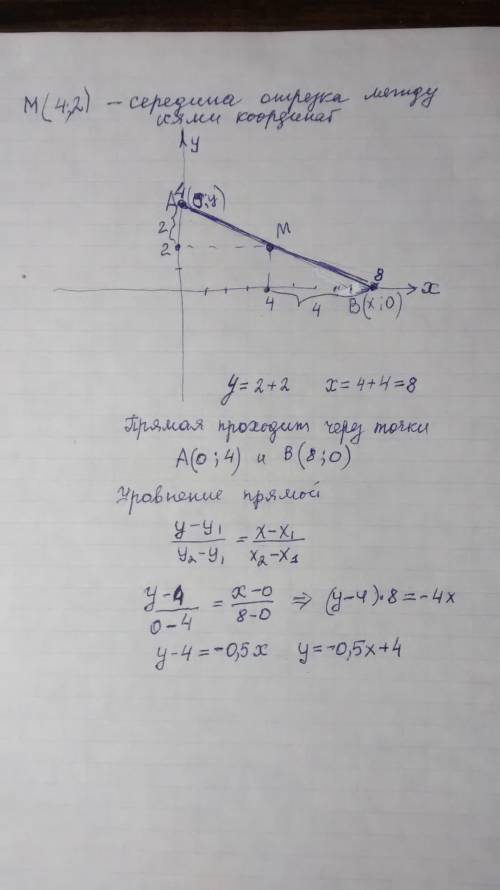 М(4;2) – середина отрезка между
осями координат
y
4
A(0;y)
2
2
M
8
4
4
B(x;0)
x
y=2+2 x=4+4=8
Прямая проходит через точки
A(0;4) и B(8;0)
Уравнение прямой
(y-y₁)/(y₂-y₁) = (x-x₁)/(x₂-x₁)
(y-4)/(0-4) = (x-0)/(8-0) ⇒ (y-4)·8=-4x
y-4=-0,5x y=-0,5x+4